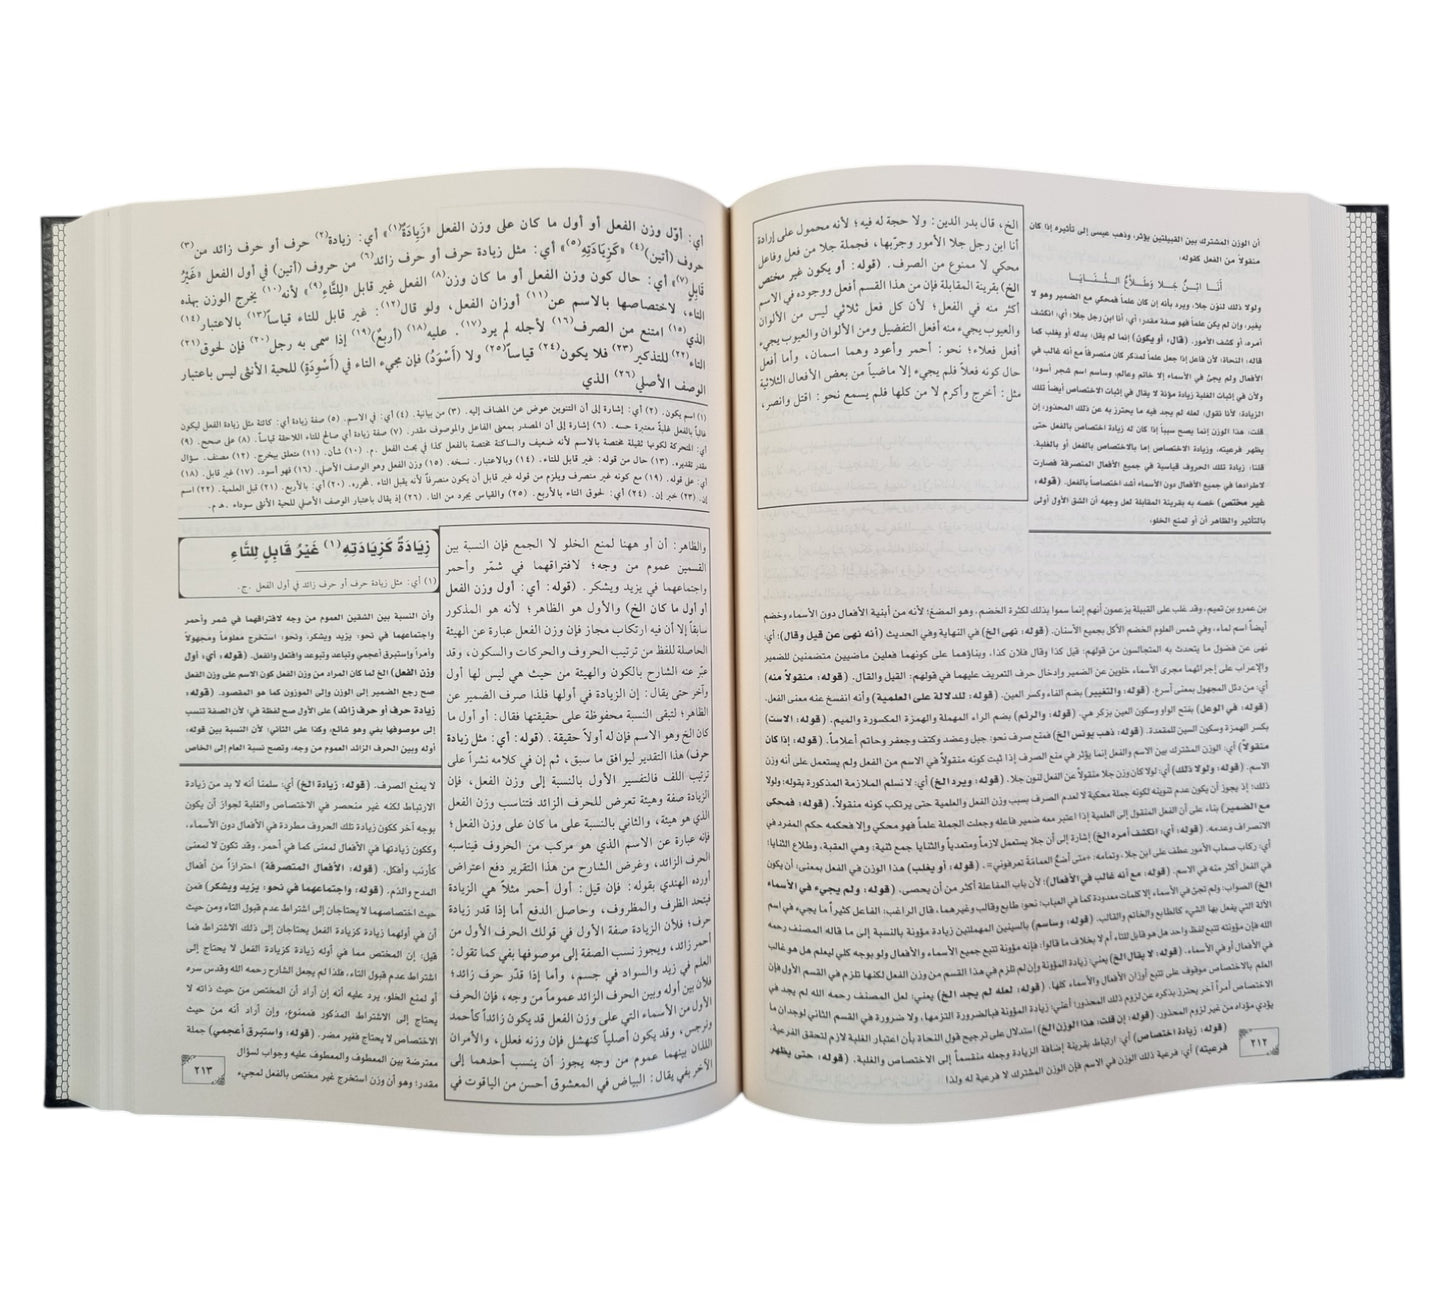 أن الوزن المشترك بين القبيلتين يؤثر، وذهب عيسى إلى تأثيره إذا كان
منقولاً من الفعل كقوله:
أَنَا ابْنُ جَلا وَطَلاَّعُ الثَّنَايَا
ولولا ذلك لنوّن جلا، ويرد بأنه إن كان علماً فمحكي مع الضمير وهو لا
يغير، وإن لم يكن علماً فهو صفة مقدر؛ أي: أنا ابن رجل جلا؛ أي: انكشف
أمره، أو كشف الأمور. (قال، أو يكون) إنما لم يقل، بدله أو يغلب كما
قاله: النحاة؛ لأن فاعل إذا جعل علماً لمذكر كان منصرفاً مع أنه غالب في
الأفعال ولم يجئ في الأسماء إلا خاتم وعالم، وساسم اسم شجر أسود؛
ولأن في إثبات الغلبة زيادة مؤنة لا يقال في إثبات الاختصاص أيضاً تلك
الزيادة؛ لأنا نقول، لعله لم يجد فيه ما يحترز به عن ذلك المحذور، إن
قلت، هذا الوزن إنما يصح سبباً إذا كان له زيادة اختصاص بالفعل حتى
يظهر فرعيته، وزيادة الاختصاص إما بالاختصاص بالفعل أو بالغلبة.
قلنا، زيادة تلك الحروف قياسية في جميع الأفعال المنصرفة فصارت
لاطرادها في جميع الأفعال دون الأسماء أشد اختصاصاً بالفعل. (قوله:
غير مختص) خصه به بقرينة المقابلة لعل وجهه أن الشق الأول أولى
بالتأثير والظاهر أن أو لمنع الخلو،
الخ، قال بدر الدين: ولا حجة له فيه؛ لأنه محمول على إرادة
أنا ابن رجل جلا الأمور وجرّبها، فجملة جلا من فعل وفاعل
محكي لا ممنوع من الصرف. (قوله: أو يكون غير مختص
الخ) بقرينة المقابلة فإن من هذا القسم أفعل ووجوده في الاسم
أكثر منه في الفعل؛ لأن كل فعل ثلاثي ليس من الألوان
والعيوب يجيء منه أفعل التفضيل ومن الألوان والعيوب يجيء
أفعل فعلاء؛ نحو: أحمر وأعود وهما اسمان، وأما أفعل
حال كونه فعلاً فلم يجيء إلا ماضياً من بعض الأفعال الثلاثية
مثل: أخرج وأكرم لا من كلها فلم يسمع نحو: اقتل وانصر،
بن عمرو بن تميم، وقد غلب على القبيلة يزعمون أنهم إنما سموا بذلك لكثرة الخضم، وهو المضغ؛ لأنه من أبنية الأفعال دون الأسماء وخضم
أيضاً اسم لماء، وفي شمس العلوم الخضم الأكل بجميع الأسنان. (قوله: نهى الخ) في النهاية وفي الحديث (أنه نهى عن قيل وقال)؛ أي:
نهى عن فضول ما يتحدث به المتجالسون من قولهم: قيل كذا وقال فلان كذا، وبناؤهما على كونهما فعلين ماضيين متضمنين للضمير
والإعراب على إجرائهما مجرى الأسماء خلوين عن الضمير وإدخال حرف التعريف عليهما في قولهم: القيل والقال. (قوله: منقولاً منه)
أي: من دئل المجهول بمعنى أسرع. (قوله: والتغيير) بضم الفاء وكسر العين. (قوله: للدلالة على العلمية) وأنه انفسخ عنه معنى الفعل.
(قوله: في الوعل) بفتح الواو وسكون العين بزكر هي. (قوله: والرئم) بضم الراء المهملة والهمزة المكسورة والميم. (قوله: الاست)
بكسر الهمزة وسكون السين للمقعدة. (قوله: ذهب يونس الخ) فمنع صرف نحو: جبل وعضد وكتف وجعفر وحاتم أعلاماً. (قوله: إذا كان
منقولاً) أي: الوزن المشترك بين الاسم والفعل إنما يؤثر في منع الصرف إذا ثبت كونه منقولاً في الاسم من الفعل ولم يستعمل على أنه وزن
الاسم. (قوله: ولولا ذلك) أي: لولا كان وزن جلا منقولاً عن الفعل لنون جلا. (قوله: ويرد الخ) أي: لا نسلم الملازمة المذكورة بقوله: ولولا
ذلك؛ إذ يجوز أن يكون عدم تنوينه لكونه جملة محكية لا لعدم الصرف بسبب وزن الفعل والعلمية حتى يرتكب كونه منقولاً. (قوله: فمحكي
مع الضمير) بناء على أن الفعل المنقول إلى العلمية إذا اعتبر معه ضمير فاعله وجعلت الجملة علماً فهو محكي وإلا فحكمه حكم المفرد في
الانصراف وعدمه. (قوله: أي: انكشف أمره الخ) إشارة إلى أن جلا يستعمل لازماً ومتعدياً والثنايا جمع ثنية؛ وهي العقبة، وطلاع الثنايا؛
أي: ركاب صعاب الأمور عطف على ابن جلا، وتمامه: «متى أضع العمامة تعرفوني». (قوله: أو يغلب) هذا الوزن في الفعل بمعنى: أن يكون
في الفعل أكثر منه في الاسم. (قوله: مع أنه غالب في الأفعال)؛ لأن باب المفاعلة أكثر من أن يحصى. (قوله: ولم يجيء في الأسماء
الخ) الصواب: ولم تجئ في الأسماء إلا كلمات معدودة كما في العباب؛ نحو: طابع وقالب وغيرهما، قال الراغب: الفاعل كثيراً ما يجيء في اسم
الآلة التي يفعل بها الشيء كالطابع والخاتم والقالب. (قوله: وساسم) بالسينين المهملتين زيادة مؤونة بالنسبة إلى ما قاله المصنف رحمه
الله فإن مؤونته تتبع لفظ واحد هل هو قابل للتاء أم لا بخلاف ما قالوا: فإنه مؤونة تتبع جميع الأسماء والأفعال ولو بوجه كلي ليعلم هل هو غالب
في الأفعال أو في الأسماء. (قوله: لا يقال الخ) يعني: زيادة المؤونة وإن لم تلزم في هذا القسم من وزن الفعل لكنها تلزم في القسم الأول فإن
العلم بالاختصاص موقوف على تتبع أوزان الأفعال والأسماء كلها. (قوله: لعله لم يجد الخ) يعني: لعل المصنف رحمه الله لم يجد في
الاختصاص أمراً آخر يحترز بذكره عن لزوم ذلك المحذور؛ أعني: زيادة المؤونة فبالضرورة التزمها، ولا ضرورة في القسم الثاني لوجدان ما
يؤدي مؤداه من غير لزوم المحذور. (قوله: إن قلت: هذا الوزن الخ) استدلال على ترجيح قول النحاة بأن اعتبار الغلبة لازم لتحقق الفرعية.
(قوله: زيادة اختصاص) أي: ارتباط بقرينة إضافة الزيادة وجعله منقسماً إلى الاختصاص والغلبة. (قوله: حتى يظهر
فرعيته) أي: فرعية ذلك الوزن في الاسم فإن الوزن المشترك لا فرعية له ولذا
٢١٢
أي: أوّل وزن الفعل أو أول ما كان على وزن الفعل «زِيَادَةٌ(١)» أي: زيادة(٢) حرف أو حرف زائد من(٣)
حروف (أتين)(٤) «كَزِيَادَتِهِ(٥)» أي: مثل زيادة حرف أو حرف زائد(٦) من حروف (أتين) في أول الفعل «غَيْرُ
قَابِلٍ(٧)» أي: حال كون وزن الفعل أو ما كان وزن(٨) الفعل غير قابل «لِلتَّاءِ(٩)» لأنه(١٠) يخرج الوزن بهذه
التاء، لاختصاصها بالاسم عن(١١) أوزان الفعل، ولو قال(١٢): غير قابل للتاء قياساً(١٣) بالاعتبار(١٤)
الذي(١٥) امتنع من الصرف(١٦) لأجله لم يرد(١٧). عليه(١٨) (أربعٌ)(١٩) إذا سمي به رجل(٢٠) فإن لحوق(٢١)
التاء(٢٢) للتذكير(٢٣) فلا يكون(٢٤) قياساً(٢٥) ولا (أَسْوَدُ) فإن مجيء التاء في (أَسْوِدَةٍ) للحية الأنثى ليس باعتبار
الوصف الأصلي(٢٦) الذي
(١) اسم يكون. (٢) أي: إشارة إلى أن التنوين عوض عن المضاف إليه. (٣) من بيانية. (٤) أي: في الاسم. (٥) صفة زيادة أي: كائنة مثل زيادة الفعل ليكون
غالباً بالفعل غلبة معتبرة حسه. (٦) إشارة إلى أن المصدر بمعنى الفاعل والموصوف مقدر. (٧) صفة زيادة أي صالح للتاء اللاحقة قياساً. (٨) على صحح. (٩)
أي: المتحركة لكونها ثقيلة مختصة بالاسم لأنه ضعيف والساكنة مختصة بالفعل كذا في بحث الفعل .م. (١٠) شأن. (١١) متعلق بيخرج. (١٢) مصنف. سؤال
مقدر تقديره. (١٣) حال من قوله: غير قابل للتاء. (١٤) وبالاعتبار. نسخه. (١٥) وزن الفعل وهو الوصف الأصلي. (١٦) فهو أسود. (١٧) غير قابل. (١٨)
أي: عل قوله. (١٩) مع كونه غير منصرف ويلزم من قوله غير قابل أن يكون منصرفاً لأنه يقبل التاء. محرره. (٢٠) أي: بالأربع. (٢١) قبل العلمية. (٢٢) اسم
إن. (٢٣) خبر إن. (٢٤) أي: لحوق التاء بالأربع. (٢٥) والقياس يجرد من التا. (٢٦) إذ يقال باعتبار الوصف الأصلي للحية الأنثى سوداء .هـ م.
والظاهر: أن أو ههنا لمنع الخلو لا الجمع فإن النسبة بين
القسمين عموم من وجه؛ لافتراقهما في شمّر وأحمر
واجتماعهما في يزيد ويشكر. (قوله: أي: أول وزن الفعل
أو أول ما كان الخ) والأول هو الظاهر؛ لأنه هو المذكور
سابقاً إلا أن فيه ارتكاب مجاز فإن وزن الفعل عبارة عن الهيئة
الحاصلة للفظ من ترتيب الحروف والحركات والسكون، وقد
عبّر عنه الشارح بالكون والهيئة من حيث هي ليس لها أول
وآخر حتى يقال: إن الزيادة في أولها فلذا صرف الضمير عن
الظاهر؛ لتبقى النسبة محفوظة على حقيقتها فقال: أو أول ما
كان الخ وهو الاسم فإن له أولاً حقيقة. (قوله: أي: مثل زيادة
حرف) هذا التقدير ليوافق ما سبق، ثم إن في كلامه نشراً على
ترتيب اللف فالتفسير الأول بالنسبة إلى وزن الفعل، فإن
الزيادة صفة وهيئة تعرض للحرف الزائد فتناسب وزن الفعل
الذي هو هيئة، والثاني بالنسبة على ما كان على وزن الفعل؛
فإنه عبارة عن الاسم الذي هو مركب من الحروف فيناسبه
الحرف الزائد، وغرض الشارح من هذا التقرير دفع اعتراض
أورده الهندي بقوله: فإن قيل: أول أحمر مثلاً هي الزيادة
فيتحد الظرف والمظروف، وحاصل الدفع أما إذا قدر زيادة
حرف؛ فلأن الزيادة صفة الأول في قولك الحرف الأول من
أحمر زائد، ويجوز نسب الصفة إلى موصوفها بفي كما تقول:
العلم في زيد والسواد في جسم، وأما إذا قدّر حرف زائد؛
فلأن بين أوله وبين الحرف الزائد عموماً من وجه، فإن الحرف
الأول من الأسماء التي على وزن الفعل قد يكون زائداً كأحمد
ونرجس، وقد يكون أصلياً كنهشل فإن وزنه فعلل، والأمران
اللذان بينهما عموم من وجه يجوز أن ينسب أحدهما إلى
الآخر بفي يقال: البياض في المعشوق أحسن من الياقوت في
زِيَادَةٌ كَزِيَادَتِهِ(١) غَيْرُ قَابِلٍ لِلتَّاءِ
(١) أي: مثل زيادة حرف أو حرف زائد في أول الفعل .ج.
وأن النسبة بين الشقين العموم من وجه لافتراقهما في شمر وأحمر
واجتماعهما في نحو: يزيد ويشكر، ونحو: استخرج معلوماً ومجهولاً
وأمراً وإستبرق أعجمي وتباعد وتبوعد وافتعل وانفعل. (قوله: أي: أول
وزن الفعل) الخ لما كان المراد من وزن الفعل كون الاسم على وزن الفعل
صح رجع الضمير إلى الوزن وإلى الموزون كما هو المقصود. (قوله:
زيادة حرف أو حرف زائد) على الأول صح لفظة في؛ لأن الصفة تنسب
إلى موصوفها بفي وهو شائع، وكذا على الثاني؛ لأن النسبة بين قوله،
أوله وبين الحرف الزائد العموم من وجه، وتصح نسبة العام إلى الخاص
لا يمنع الصرف. (قوله: زيادة الخ) أي: سلمنا أنه لا بد من زيادة
الارتباط لكنه غير منحصر في الاختصاص والغلبة لجواز أن يكون
بوجه آخر ككون زيادة تلك الحروف مطردة في الأفعال دون الأسماء،
وككون زيادتها في الأفعال لمعنى كما في أحمر، وقد تكون لا لمعنى
كأرنب وأفكل. (قوله: الأفعال المتصرفة) احترازاً من أفعال
المدح والذم. (قوله: واجتماعهما في نحو: يزيد ويشكر) فمن
حيث اختصاصهما لا يحتاجان إلى اشتراط عدم قبول التاء ومن حيث
أن في أولهما زيادة كزيادة الفعل يحتاجان إلى ذلك الاشتراط فما
قيل: إن المختص مما في أوله زيادة كزيادة الفعل لا يحتاج إلى
اشتراط عدم قبول التاء، فلذا لم يجعل الشارح رحمه الله وقدس سره
أو لمنع الخلو، يرد عليه أنه إن أراد أن المختص من حيث ذاته لا
يحتاج إلى الاشتراط المذكور فممنوع، وإن أراد أنه من حيث
الاختصاص لا يحتاج فغير مضر. (قوله: وإستبرق أعجمي) جملة
معترضة بين المعطوف والمعطوف عليه وجواب لسؤال
مقدر؛ وهو أن وزن استخرج غير مختص بالفعل لمجيء
٢١٣